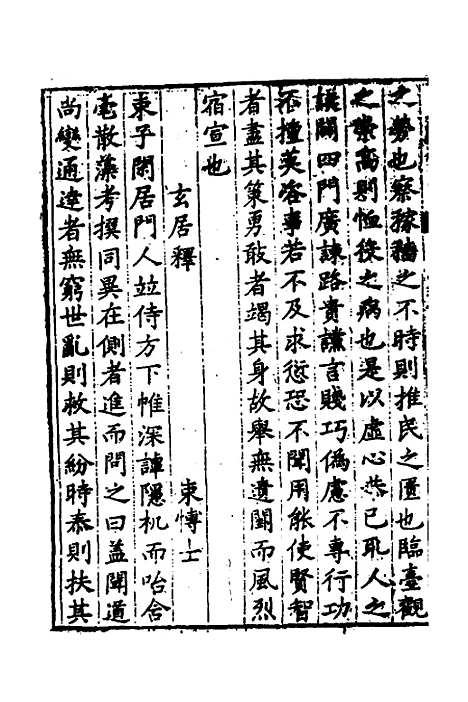 之勞也察稼穡之不時則推民之匱也臨臺觀
之崇高則恤役之病也是以虛心恭己取人之
謨闢四門廣諫路貴讜言賤巧偽慮不專行功
不擅美咨事若不及求愆恐不聞用能使賢智
者盡其策勇敢者竭其身故舉無遺闓而風烈
宿宣也
玄居釋 束愽士
束子閑居門人並侍方下帷深譚隱机而咍含
毫散藻考撰同異在側者進而問之曰蓋聞道
尚變通達者無窮世亂則救其紛時泰則扶其